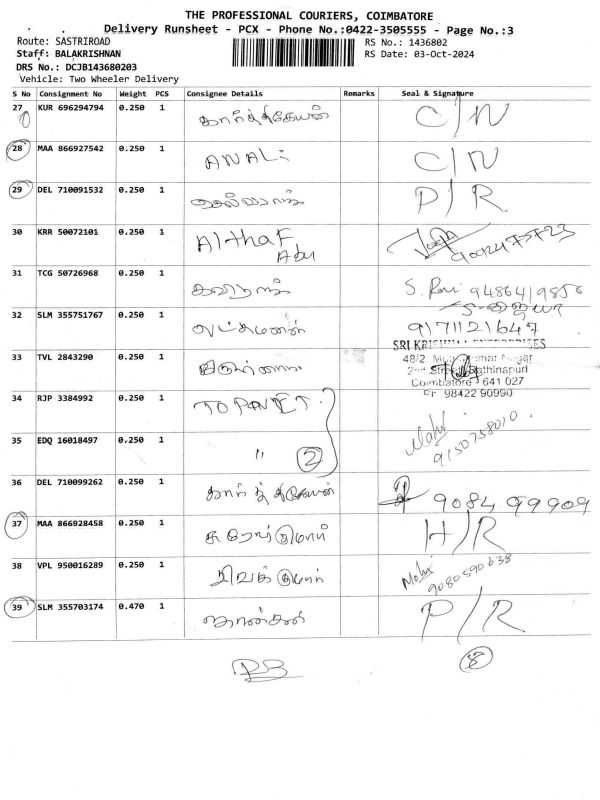 THE PROFESSIONAL COURIERS, COIMBATORE
Delivery Runsheet - PCX - Phone No.:0422-3505555 - Page No.:3
Route: SASTRIROAD
RS No.: 1436802
Staff: BALAKRISHNAN
RS Date: 03-Oct-2024
DRS No.: DCJB143680203
Vehicle: Two Wheeler Delivery
S No Consignment No Weight PCS Consignee Details Remarks Seal & Signature
27 KUR 696294794 0.250 1 கார்த்திகேயன் C/N
28 MAA 866927542 0.250 1 C/N
29 DEL 710091532 0.250 1 P/R
30 KRR 50072101 0.250 1 Althaf
31 TCG 50726968 0.250 1 S. Ravi
32 SLM 355751767 0.250 1 லட்சுமணன் 9171121647
33 TVL 2843290 0.250 1
SRI KRISHNA ENTERPRISES
Coimbatore - 641 027
98422 90990
34 RJP 3384992 0.250 1
35 EDQ 16018497 0.250 1 " 2 9150758010
36 DEL 710099262 0.250 1 கார்த்திகேயன் 9084 99909
37 MAA 866928458 0.250 1 H/R
38 VPL 950016289 0.250 1 9080590638
39 SLM 355703174 0.470 1 P/R
8